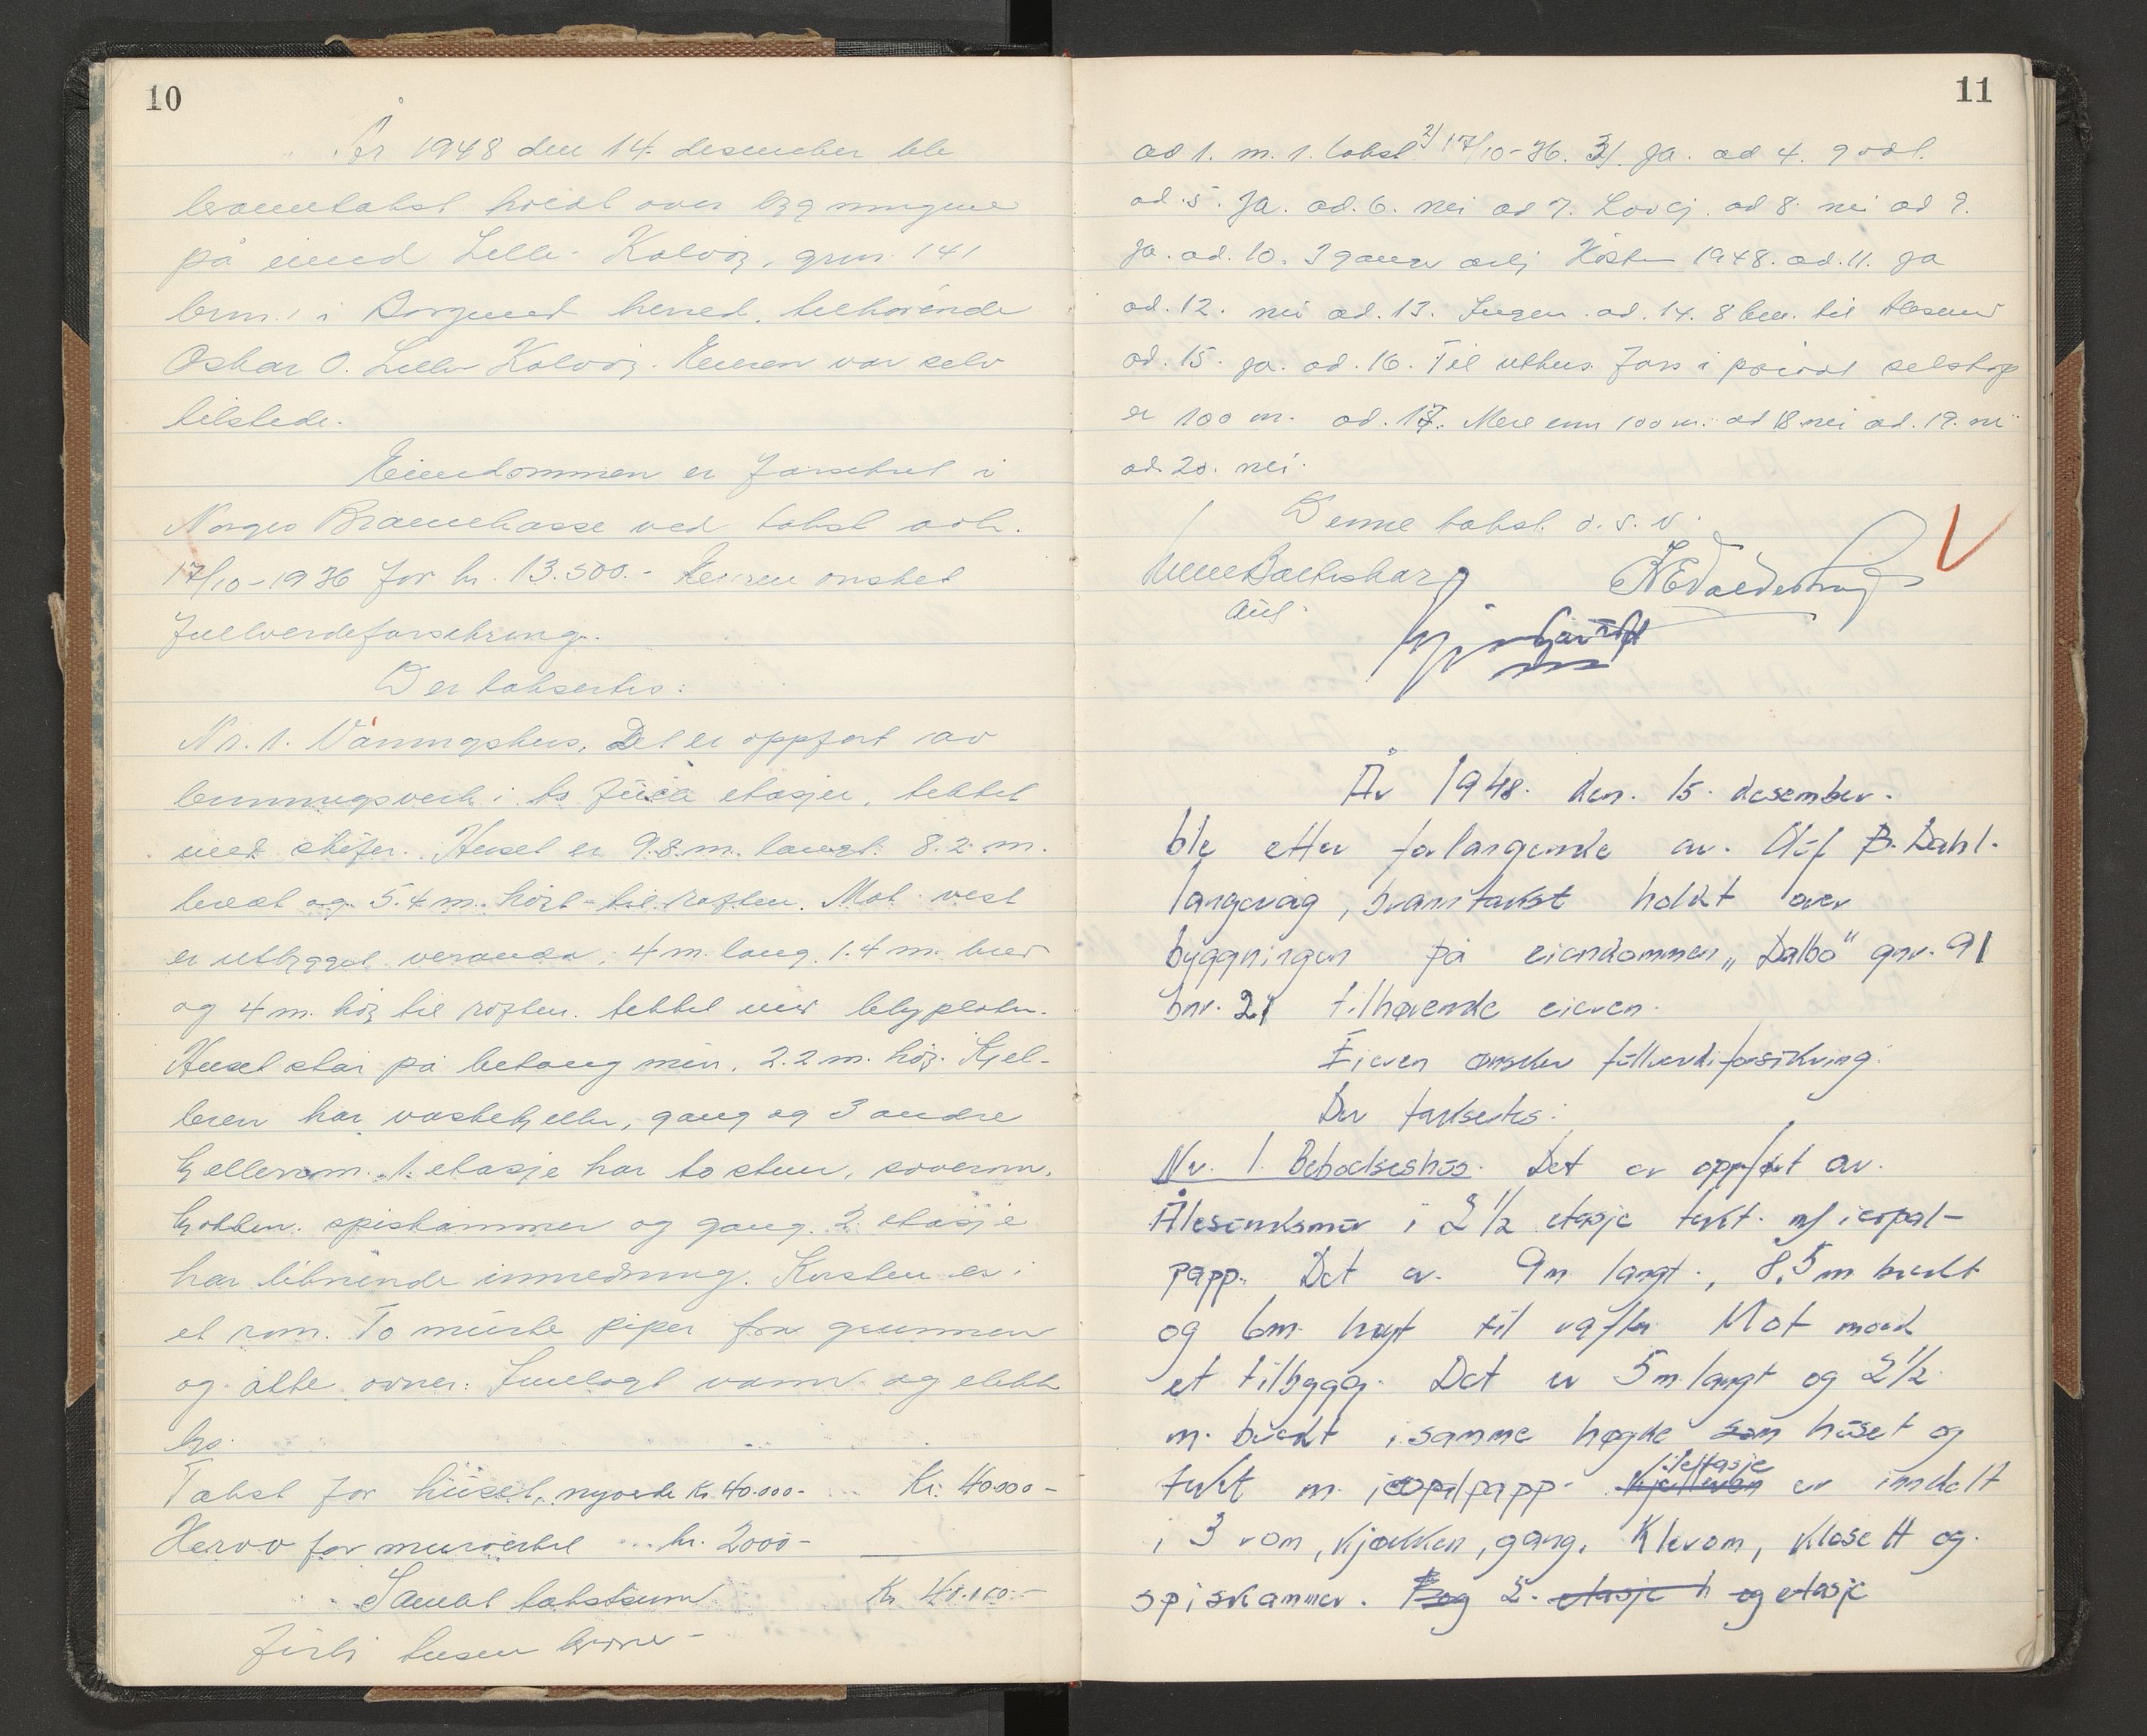 10
År 1948 den 14. desember ble
branntakst holdt over bygningene
på eiend Lille-Kalvøy, grn. 141
brn. 1 i Borgund herred, tilhørende
Oskar O. Lille Kalvøy. Eieren var selv
tilstede.
Eiendommen er forsikret i
Norges Brannkasse ved takst avh.
17/10-1936 for kr. 13.500.- Eieren ønsket
fullverdeforsikring.
Der taksertes:
Nr. 1. Våningshus. Det er oppført av
bindingsverk i to fulle etasjer, tekket
med skifer. Huset er 9.8 m. langt. 8.2 m.
bredt og 5.4 m. høgt til røften. Mot vest
er utbygget veranda, 4 m. lang. 1.4 m. bred
og 4 m. høg til røften. tekket med blyplater.
Huset står på betong mur, 2.2 m. høg. Kjel-
leren har vaskekjeller, gang og 3 andre
kjellerom. 1. etasje har to stuer, soverom,
kjøkken. spiskammer og gang. 2. etasje
har liknende innredning. Kvisten er i
et rom. To murte piper fra grunnen
og åtte ovner. Innlagt vann og elektr
lys.
Takst for huset, nyverde kr 40.000.- Kr. 40000-
Herav for murverket kr. 2000-
Samlet takstsum Kr 40.000.-
Førti tusen kroner-
11
ad 1. m. 1. takst. 2) 17/10-36. 3). Ja. ad 4. godt.
ad. 5. Ja. ad. 6. nei ad 7. Lovlj. ad 8. nei ad 9.
Ja. ad. 10. 3 ganger årlj Høsten 1948. ad. 11. Ja
ad. 12. nei ad. 13. Ingen. ad. 14. 8 km. til Ålesund
ad. 15. ja. ad. 16. Til uthus. fors i privat selskap
er 100 m. ad. 17. Mere enn 100 m. ad 18 nei ad. 19. nei
ad. 20. nei.
Denne takst. o. s. v.
År 1948. den. 15. desember.
ble etter forlangende av. Oluf B. Dahl.
langevåg, branntakst holdt over
byggningen på eiendommen "Dalbo" gnr. 91
bnr. 21 tilhørende eieren.
Eieren ønsker fullverdiforsikring.
Der taksertes:
Nr. 1. Beboelseshus. Det er oppført av.
Ålesundsmur i 2 1/2 etasje tekt. m/ icopal-
papp. Det er. 9m langt., 8,5 m bredt
og 6m. høgt til røften Mot nord
et tilbygg. Det er 5 m. langt og 2 1/2
m. bredt i samme høgde som huset og
tekt m. icopalpapp. Kjelleren 1ste etasje er inndelt
i 3 rom, kjøkken, gang, Klerom, Klosett og
spiskammer. og 2. etasje h og etasje